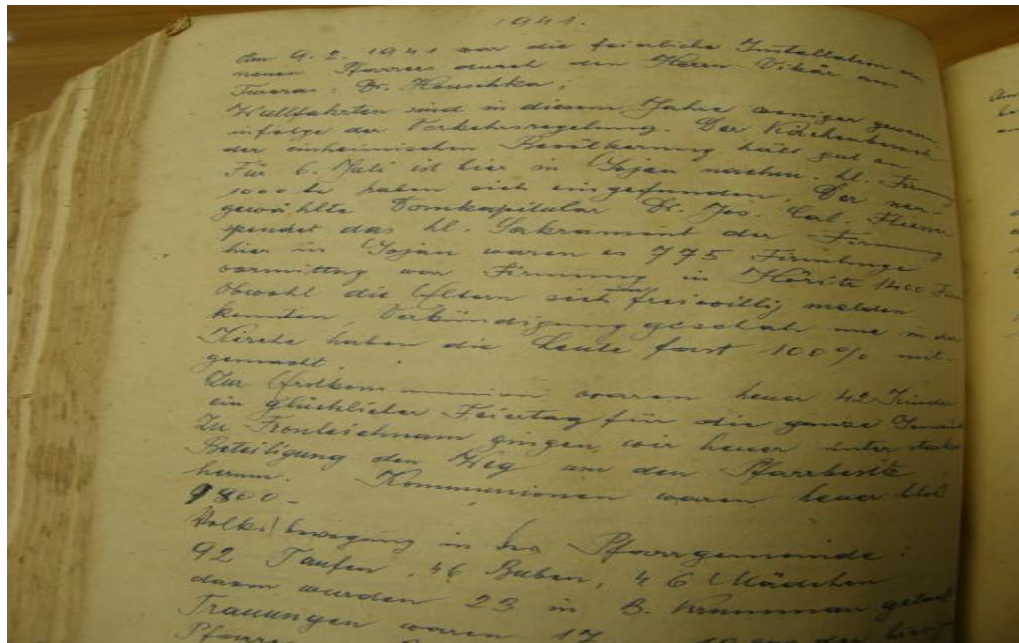 1941.
Am 9. 2. 1941 war die feierliche Installation des
neuen Pfarrers durch den Herrn Vikär aus
Tweras: Dr. Houschka;
Wallfahrten sind in diesem Jahre weniger gewesen
infolge der Verkehrsregelung. Der Kirchenbesuch
der einheimischen Bevölkerung hält gut an
Für 6. Juli ist hier in Gojau nachm. hl. Firmung
1000 te haben sich eingefunden. Der neu-
gewählte Domkapitular Dr. Jos. Cal. Fliesser
spendet das hl. Sakrament der Firmung
hier in Gojau waren es 775 Firmlinge
vormittag war Firmung in Höritz 1400
Obwohl die Eltern sich freiwillig melden
konnten, Verkündigung geschah nur in der
Kirche haben die Leute fast 100% mit-
gemacht.
Zur Erstkommunion waren heuer 42 Kinder
ein glücklicher Feiertag für die ganze Gemeinde
Zu Fronleichnam gingen wir heuer unter starker
Beteiligung den Weg um den Pfarrbesitz
herum. Kommunionen waren heuer
9800 -
Volksbewegung in der Pfarrgemeinde:
92 Taufen, 46 Buben, 46 Mädchen
davon wurden 23 in B. Krummau getauft
Trauungen waren 17 10 der